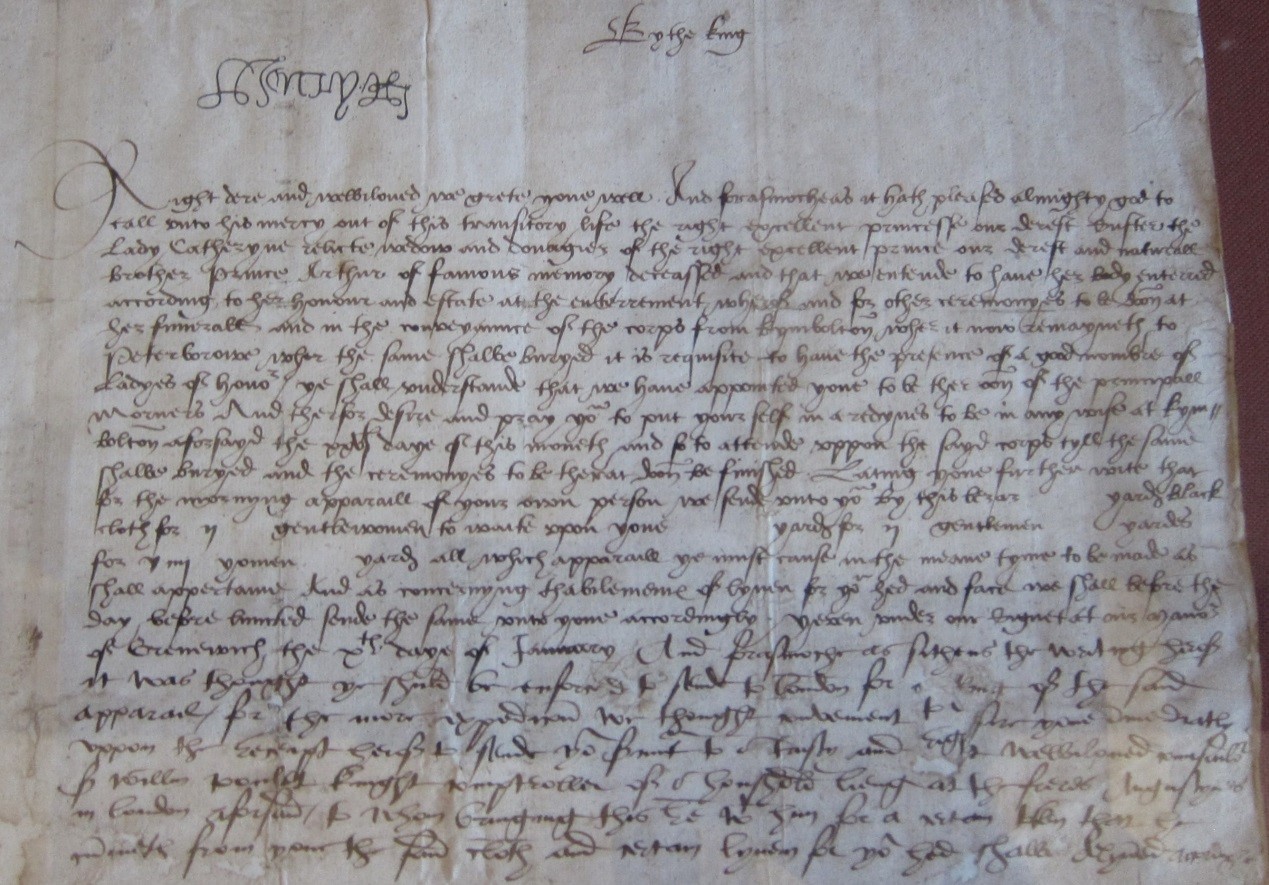 By the King
Henry R
Right dere and welbiloved we grete youe well. And forasmocheas it hath pleased almighty god to
call unto his mercy out of this transitory life the right excellent princesse our derest Suster the
Lady Catheryne relicte wydow and douagier of the right excellent prince our derest and naturall
brother Prince Arthur of famous memory deceassed and that we entende to have her body enterred
according to her honour and estate at the enterrement wherof and for other ceremonyes to be doon at
her funerall and in the conveyaunce of the corps from Kymbolton wher it now remayneth to
Peterborowe wher the same shalbe buryed it is requisite to have the presence of a good nombre of
Ladyes of honor ye shall understande that we have appointed youe to be ther oon of the principall
Morners And therfor desire and pray yo to put your self in a redynes to be in any wise at Kym
bolton aforsayd the daye of this moneth and so to attende uppon the sayd corps tyll the same
shalbe buryed and the ceremonyes to be therat doon be finished Lating youe further wite that
for the mornyng apparaill of your own person we sende unto yo by this berar yards black
cloth for ij gentlewomen to waite upon youe yards for ij gentlemen yardes
for yomen yards all which apparaill ye must cause in the meane tyme to be made as
shall appertaine And as concernyng thabilement of lynen for yo hed and face we shall before the
day before limited sende the same unto youe accordingly Yeven under our Signet at our Mano
of Grenewich the xth daye of January And forasmoche as sithens the writing herof
it was thought ye shuld be enforced to sende to London for of the said
apparail for the more expedicion we thought convenient to youe
uppon the receipt herof to sende yo srunt to and right welbiloved
Willm poulet Knight comptroller of houshold lieng at the freres Augustynes
in london aforsaid to whom bringing this to him for a certan tkn that he
from youe the said cloth and certan lynen for yo hed shalbe delyvered